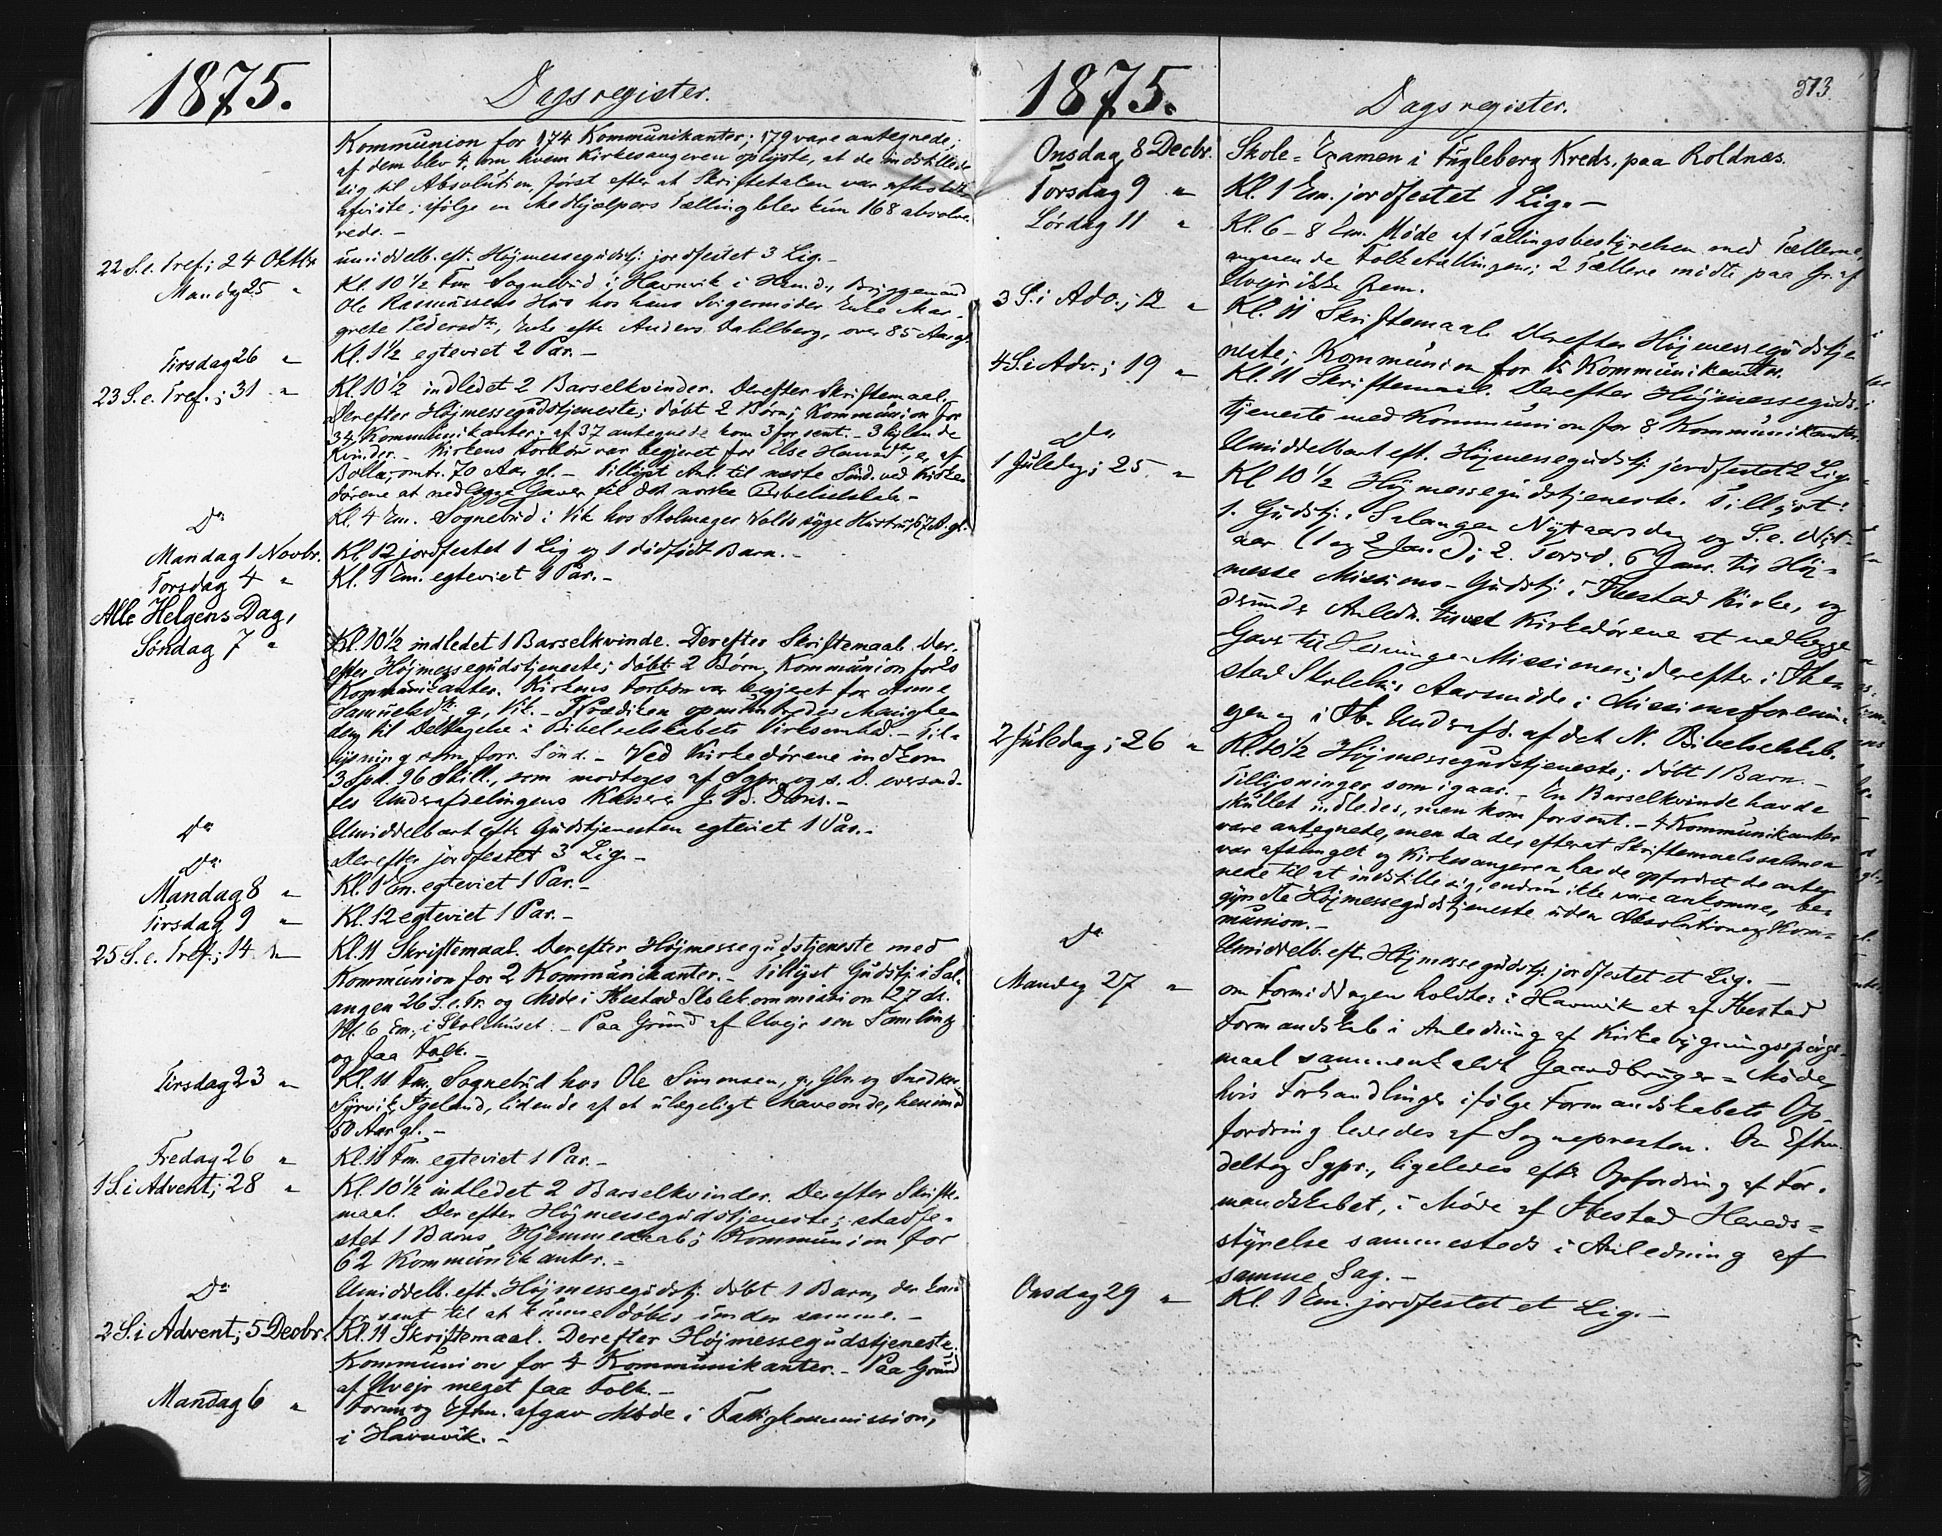 1875.
Dagsregister.
Kommunion for 174 Kommunikanter; 179 vare antegnede,
af dem blev 4, om hvem Kirkesangeren oplyste, at de indstillede
sig til Absolution først efter at Skriftetalen var afholdt
afviste; ifølge en Medhjælpers Tælling blev kun 168 absolve-
rede. —
22 S. e. Tref.; 24 Oktbr. umiddelb. eft. Højmessegudstj. jordfestet 3 Lig. —
Mandag 25 " Kl. 10 1/2 Fm. Sognebud i Havnvik i
Ole Rasmussens Hus hos hans Svigermoder Enke Mar-
grete Pedersdtr., Enke efter Anders Dahlberg, over 85 Aar gl.
Tirsdag 26 " Kl. 1 1/2 egteviet 2 Par. —
23 S. e. Tref.; 31 " Kl. 10 1/2 indledet 2 Barselkvinder. Derefter Skriftemaal.
Derefter Højmessegudstjeneste; døbt 2 Børn; Kommunion for
34 Kommunikanter; af 37 antegnede kom 3 for sent. —
Kvinder. — Kirkens Forbøn var begjeret for Else af
Bolla, omtr. 70 Aar gl. — Tillyst Anl. til næste Sønd. ved Kirke-
dørene at nedlægge Gaver til det norske Bibelselskab. —
Do Kl. 4 Em. Sognebud i Vik hos Skolmager syge Hustru,
Mandag 1 Novbr. Kl. 12 jordfestet 1 Lig og 1 dødfødt Barn. —
Torsdag 4 " Kl. 1 Em. egteviet 1 Par. —
Alle Helgens Dag,
Søndag 7 " Kl. 10 1/2 indledet 1 Barselkvinde. Derefter Skriftemaal. Der-
efter Højmessegudstjeneste; døbt 2 Børn, Kommunion for
Kommunikanter. Kirkens Forbøn var begjeret for Anne
Samuelsdtr. g., Vik. — I Prædiken opmuntredes Menighe-
den til Deltagelse i Bibelselskabets Virksomhed. — Til-
lysning som forr. Sønd. — Ved Kirkedørene indkom
3 Spd. 96 Skill., som modtoges af Sgpr. og s. D. oversend-
tes Underafdelingens Kasserer J. B.
Do Umiddelbart efter Gudstjenesten egteviet 1 Par. —
Do Derefter jordfestet 3 Lig. —
Mandag 8 " Kl. 1 Em. egteviet 1 Par. —
Tirsdag 9 " Kl. 12 egteviet 1 Par. —
25 S. e. Tref.; 14 " Kl. 11 Skriftemaal. Derefter Højmessegudstjeneste med
Kommunion for 2 Kommunikanter. — Tillyst Gudstj. i Sal-
angen 26 S. e. Tr. og Møde i Ibestad Skolekommission 27 ds.
Kl. 6 Em. i Skolehuset. — Paa Grund af Uvejr sen Samling
og faa Folk. —
Tirsdag 23 " Kl. 11 Fm. Sognebud hos Ole Simonsen, g., Gbr. og Snedker
Sørvik, Igeland, lidende af et ulægeligt Maveonde, henimod
50 Aar gl. —
Fredag 26 " Kl. 11 Fm. egteviet 1 Par. —
1 S. i Advent; 28 " Kl. 10 1/2 indledet 2 Barselkvinder. Derefter Skrifte-
maal. Derefter Højmessegudstjeneste; stadfe-
stet 1 Barns Hjemmedaab; Kommunion for
62 Kommunikanter. —
Do Umiddelb. eft. Højmessegudstj. døbt 1 Barn, der kom
for sent til at kunne døbes under samme. —
2 S. i Advent; 5 Decbr. Kl. 11 Skriftemaal. Derefter Højmessegudstjeneste;
Kommunion for 4 Kommunikanter. — Paa Grund
af Uvejr meget faa Folk. —
Mandag 6 " Form. og Efm. afgav Møde i Fattigkommission,
i Havnvik. —
1875.
Dagsregister.
513
Onsdag 8 Decbr. Skole-Examen i Fugleberg Kreds, paa Roldnæs.
Torsdag 9 " Kl. 1 Em. jordfestet 1 Lig. —
Lørdag 11 " Kl. 6 – 8 Em. Møde af Tællingsbestyrelsen med Tællerne
angaaende Folketællingen; 2 Tællere mødte paa Gr. af
Uvejr ikke frem.
3 S. i Adv.; 12 " Kl. 11 Skriftemaal. Derefter Højmessegudstje-
neste; Kommunion for 15 Kommunikanter.
4 S. i Adv.; 19 " Kl. 11 Skriftemaal. Derefter Højmesseguds-
tjeneste med Kommunion for 8 Kommunikanter.
Do Umiddelbart eft. Højmessegudstj. jordfestet 2 Lig.
1 Juledag; 25 " Kl. 10 1/2 Højmessegudstjeneste. Tillyst:
1. Gudstj. i Salangen Nytaarsdag og S. e. Nyt-
aar (1 og 2 Jan.); 2. Torsd. 6 Janr. til Høj-
messe Missions-Gudstj. i Ibestad Kirke, og
derunder Anledn. til ved Kirkedørene at nedlægge
Gaver til Missionen; derefter i Ibe-
stad Skolehus Aarsmøde i Missionsforenin-
gen og i Ib. Underafd. af det N. Bibelselskab.
2 Juledag; 26 " Kl. 10 1/2 Højmessegudstjeneste; døbt 1 Barn. —
Tillysninger som igaar. — En Barselkvinde havde
skullet indledes, men kom for sent. — 4 Kommunikanter
vare antegnede, men da de, efterat Skriftemaalssalmen
var afsunget og Kirkesangeren havde opfordret de anteg-
nede til at indstille sig, endnu ikke vare ankomne, be-
gyndte Højmessegudstjeneste uden Absolution og Kom-
munion. —
Do Umiddelb. eft. Højmessegudstj. jordfestet et Lig. —
Mandag 27 " om Formiddagen holdtes i Havnvik et af Ibestad
Formandskab i Anledning af Kirkebygningsspørgs-
maal sammenkaldt Gaardbruger-Møde,
hvis Forhandlinger ifølge Formandskabets Op-
fordring lededes af Sognepresten. Om Efterm.
deltog Sgpr., ligeledes efter Opfordring af For-
mandskabet, i Møde af Ibestad Hereds-
styrelse sammesteds i Anledning af
samme Sag. —
Onsdag 29 " Kl. 1 Em. jordfestet et Lig. —